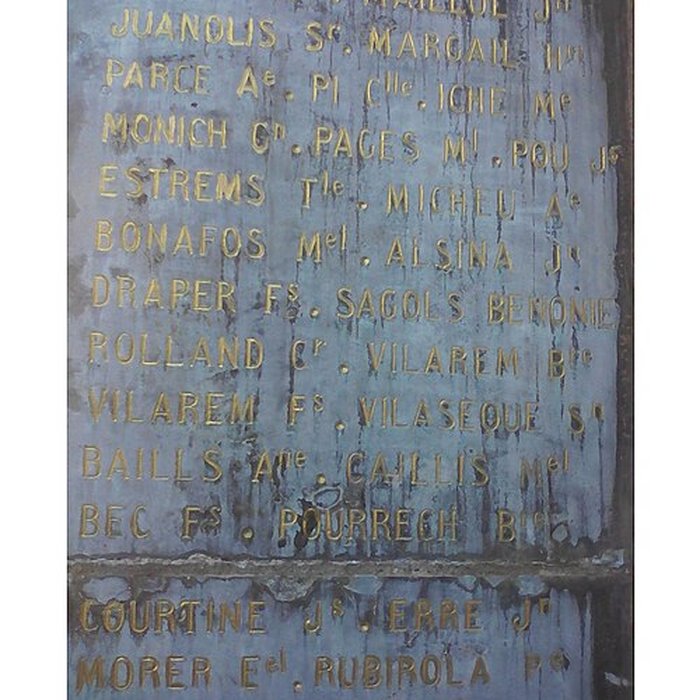 MAILLOL Jⁿ
JUANOLIS Sʳ. MARGAIL
PARCE Aᵉ. PI Cˡˡᵉ. ICHE Mᵉ
MONICH Cⁿ. PAGES Mˡ. POU Jʰ
ESTREMS Tˡᵉ. MICHEU Aᵉ
BONAFOS Mᵉˡ. ALSINA Jⁿ
DRAPER Fˢ. SAGOLS BENONIE
ROLLAND Cʳ. VILAREM Bᵗᵉ
VILAREM Fˢ. VILASEQUE Sⁿ
BAILLS Aⁿᵉ. CAILLIS Mᵉˡ
BEC Fˢ. POURRECH
COURTINE Jˢ. ERRE Jʰ
MORER Eᵉˡ. RUBIROLA Pᵉ